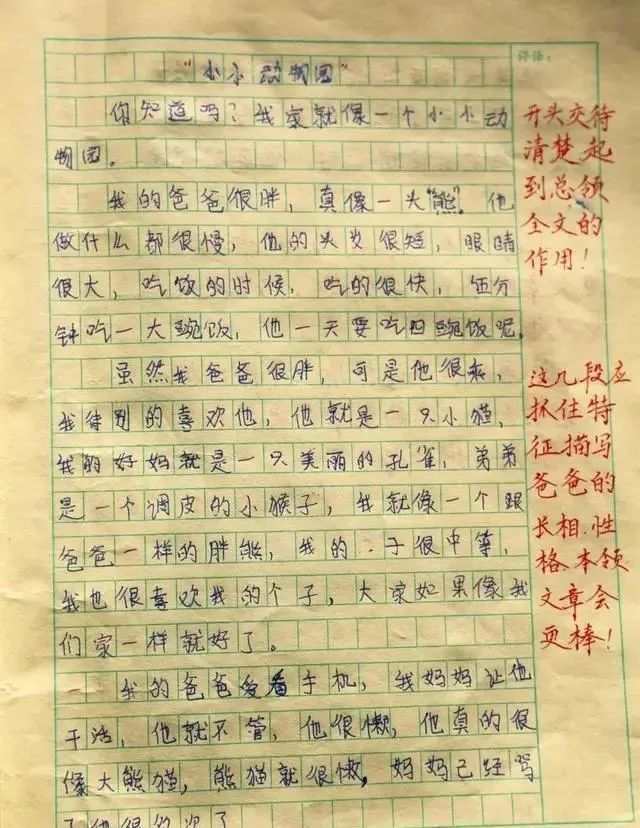 评语：
“小小动物园”
你知道吗？我家就像一个小小动
物园。
我的爸爸很胖，真像一头“熊”。他
做什么都很慢，他的头发很短，眼睛
很大，吃饭的时候，吃的很快，五分
钟吃一大豌饭，他一天要吃四豌饭呢。
虽然我爸爸很胖，可是他很乖，
我待别的喜欢他，他就是一只小猫，
我的好妈就是一只美丽的孔雀，弟弟
是一个调皮的小猴子，我就像一个跟
爸爸一样的胖熊，我的 子很中等，
我也很喜欢我的个子，大家如果像我
们家一样就好了。
我的爸爸爱看手机，我妈妈让他
干活，他就不管，他很懒，他真的很
像大熊猫，熊猫就很懒，妈妈已经骂
了他很多次了
开头交待
清楚起
到总领
全文的
作用！
这几段应
抓住特
征描写
爸爸的
长相、性
格、本领
文章会
更棒！